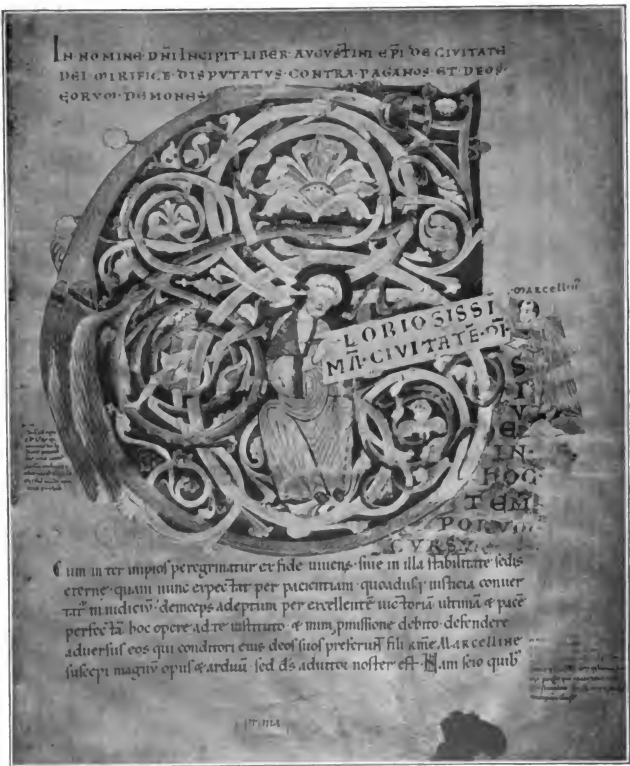 IN NOMINE DNI INCIPIT LIBER AVGVSTINI EPI DE CIVITATE
DEI MIRIFICE DISPVTATVS CONTRA PAGANOS ET DEOS
EORVM DEMONES
MARCELLIN
LORIOSISSI
MA CIVITATE DI
S
TVE
IN
HOC
TEM
PORV
CVRSV
Cum inter impios peregrinatur ex fide uiuens siue in illa stabilitate sedis
eterne quam nunc expectat per pacientiam quoadusq; iusticia conuer
tat in iudiciu deinceps adeptum per excellente uictoria ultima & pace
perfecta hoc opere ad te instituto & mi pmissione debito defendere
aduersus eos qui conditori eius deos suos preferunt fili kme MARCELLINE
suscepi magnu opus & arduu sed ds adiutor noster est Nam scio quib